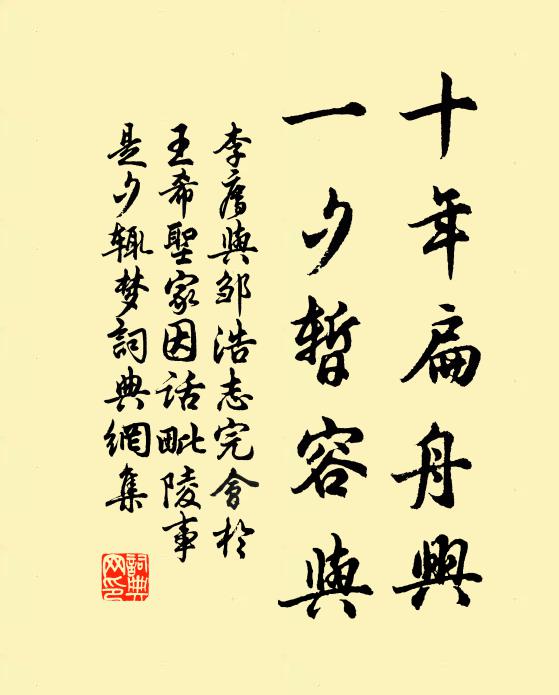 十年扁舟興
一夕暫容與
李廌與鄒浩志完會於
王希聖家因話毗陵事
是夕輒梦詞典網集
詞典
网印